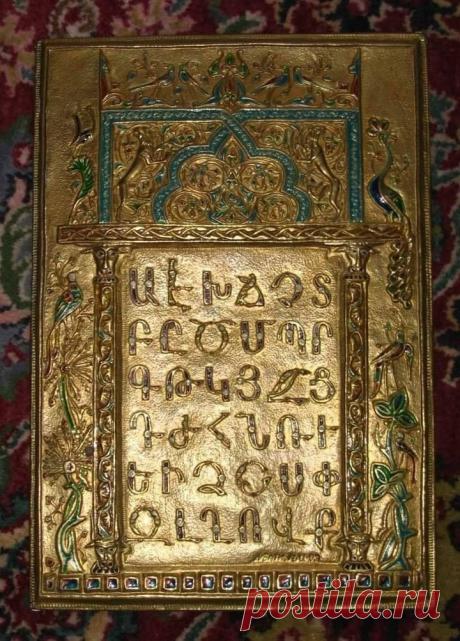 ԱԷԽՃՉՏ
ԲԸԾՄՊՐ
ԳԹԿՅՋՑ
ԴԺՀՆՌՒ
ԵԻՁՇՍՓ
ԶԼՂՈՎՔ
postila.ru